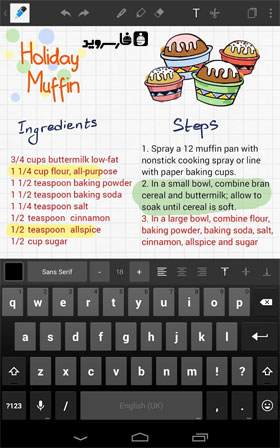 Holiday
Muffin
فارسروید
Ingredients
3/4 cups buttermilk low-fat
1 1/4 cup flour, all-purpose
1 1/2 teaspoon baking powder
1 1/2 teaspoon baking soda
1 1/4 teaspoon salt
1/2 teaspoon cinnamon
1/2 teaspoon allspice
1/2 cup sugar
Steps
1. Spray a 12 muffin pan with
nonstick cooking spray or line
with paper baking cups.
2. In a small bowl, combine bran
cereal and buttermilk; allow to
soak until cereal is soft.
3. In a large bowl, combine flour,
baking powder, baking soda, salt,
cinnamon, allspice and sugar
Sans Serif - 18 +
q w e r t y u i o p
a s d f g h j k l
z x c v b n m ! ?
?123 / English (UK) , .